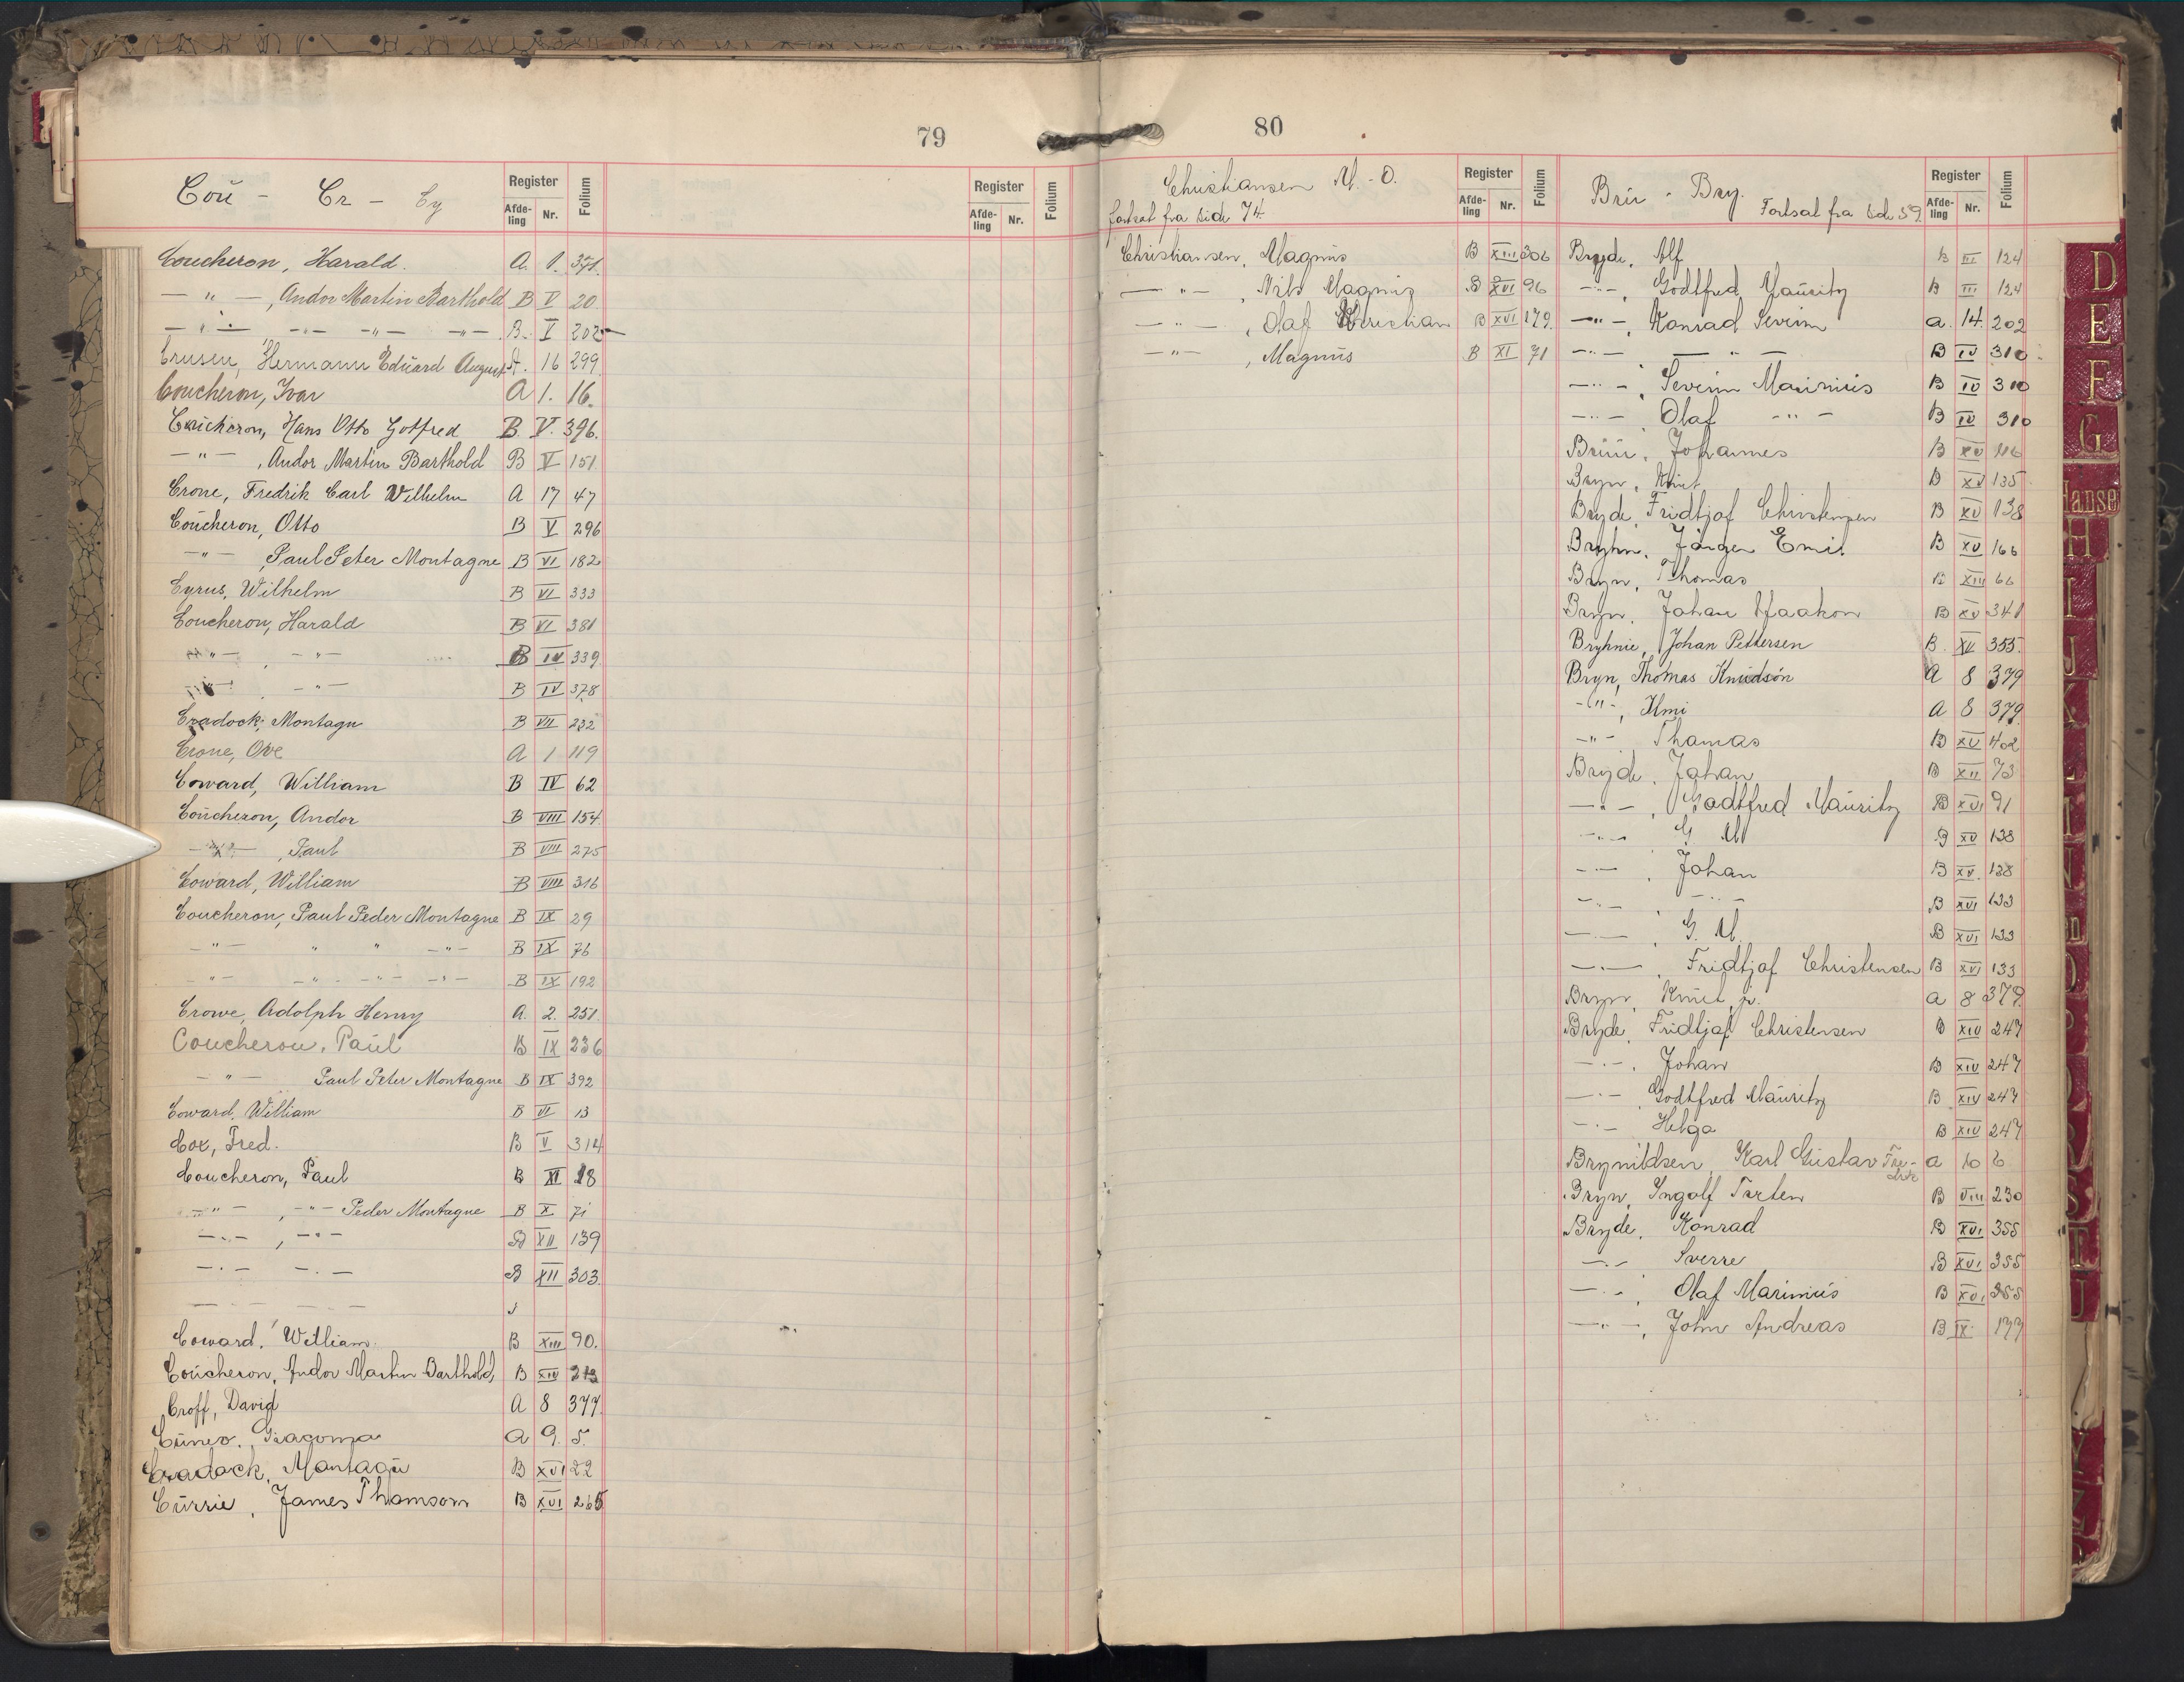 79
Cou - Cr - Cy
Register Afde-ling Nr. Folium
Register Afde-ling Nr. Folium
Coucheron, Harald. A. 1. 371.
— " — , Andor Martin Barthold B V 20
— " — — " — — " — — " — B. V 202
Crusen, Hermann Eduard August A. 16 299
Coucheron, Ivar A 1. 16.
Coucheron, Hans Otto Gotfred B. V. 396.
— " — , Andor Martin Barthold B V 151
Crone, Fredrik Carl Wilhelm A 17 47
Coucheron, Otto B V 296
— " — , Paul Peter Montagne B VI 182
Cyrus, Wilhelm B VI 333
Coucheron, Harald B VI 381
— " — , — " — B IV 339
— " — , — " — B IV 378
Cradock, Montagu B VII 232
Crone, Ove A 1 119
Coward, William B IV 62
Coucheron, Andor B VIII 154
— " — , Paul B VIII 275
Coward, William B VIII 316
Coucheron, Paul Peder Montagne B IX 29
— " — " " — " — B IX 76
— " — — " — — " — — " — B IX 192
Crowe, Adolph Henry A. 2. 251.
Coucheron, Paul B IX 236
— " — Paul Peter Montagne B IX 392
Coward, William B VI 13
Cox, Fred. B V 314
Coucheron, Paul B XI 18
— " — , — " — Peder Montagne B X 71
— " — , — " — B XII 139
— " — — " — B XII 303.
Coward, William B XIII 90.
Coucheron, Andor Martin Barthold, B XIV 213
Croff, David A 8 377.
Cuneo, Giacoma A 9. 5.
Cradock, Montagu B XVI 22
Currie, James Thomson B XVI 265
80
Christiansen M. - O.
fortsat fra side 74.
Register Afde-ling Nr. Folium
Christiansen, Magnus B XIII 306
— " — , Nils Magnus B XVI 96
— " — , Olaf Christian B XVI 179.
— " — , Magnus B XI 71
Bru - Bry. Fortsat fra side 59.
Register Afde-ling Nr. Folium
Bryde, Alf B III 124
— " — , Godtfred Mauritz B III 124
— " — , Konrad Severin A. 14. 202
— " — — " — B IV 310
— " — , Severin Marinius B IV 310
— " — , Olaf — " — B IV 310
Bruu, Johannes B XV 116
Bryn, Knut B XV 135
Bryde, Fridtjof Christensen B XV 138
Bryhn, Jörgen Emil B XV 166
Bryn, Thomas B XIII 66
Bryn, Johan Haakon B XV 341
Bryhnie, Johan Pettersen B. XV 355.
Bryn, Thomas Knudsön A 8 379
— " — , Kmi A 8 379.
— " — Thomas B XV 402
Bryde, Johan B XII 73
— " — , Godtfred Mauritz B XVI 91
— " — G. M B XV 138
— " — , Johan B XV. 138
— " — — " — B XVI 133
— " — , G. M. B XVI 133
— " — , Fridtjof Christensen B XVI 133
Bryn, Knut jr. A 8 379.
Bryde, Fridtjof Christensen B XIV 247
— " — , Johan B XIV 247
— " — , Godtfred Mauritz B XIV 247
— " — Helga B XIV 247
Brynildsen, Karl Gustav Fre-drik A 10 6
Bryn, Ingolf Torten B VIII 230
Bryde, Konrad B XVI 355
— " — Sverre B XVI 355
— " — , Olaf Marinius B XVI 355
— " — , John Andreas B IX 177
D
E
F
G
Hanse
H
I
J
K
L
M
N
O
R
S
T
U
Y
Z